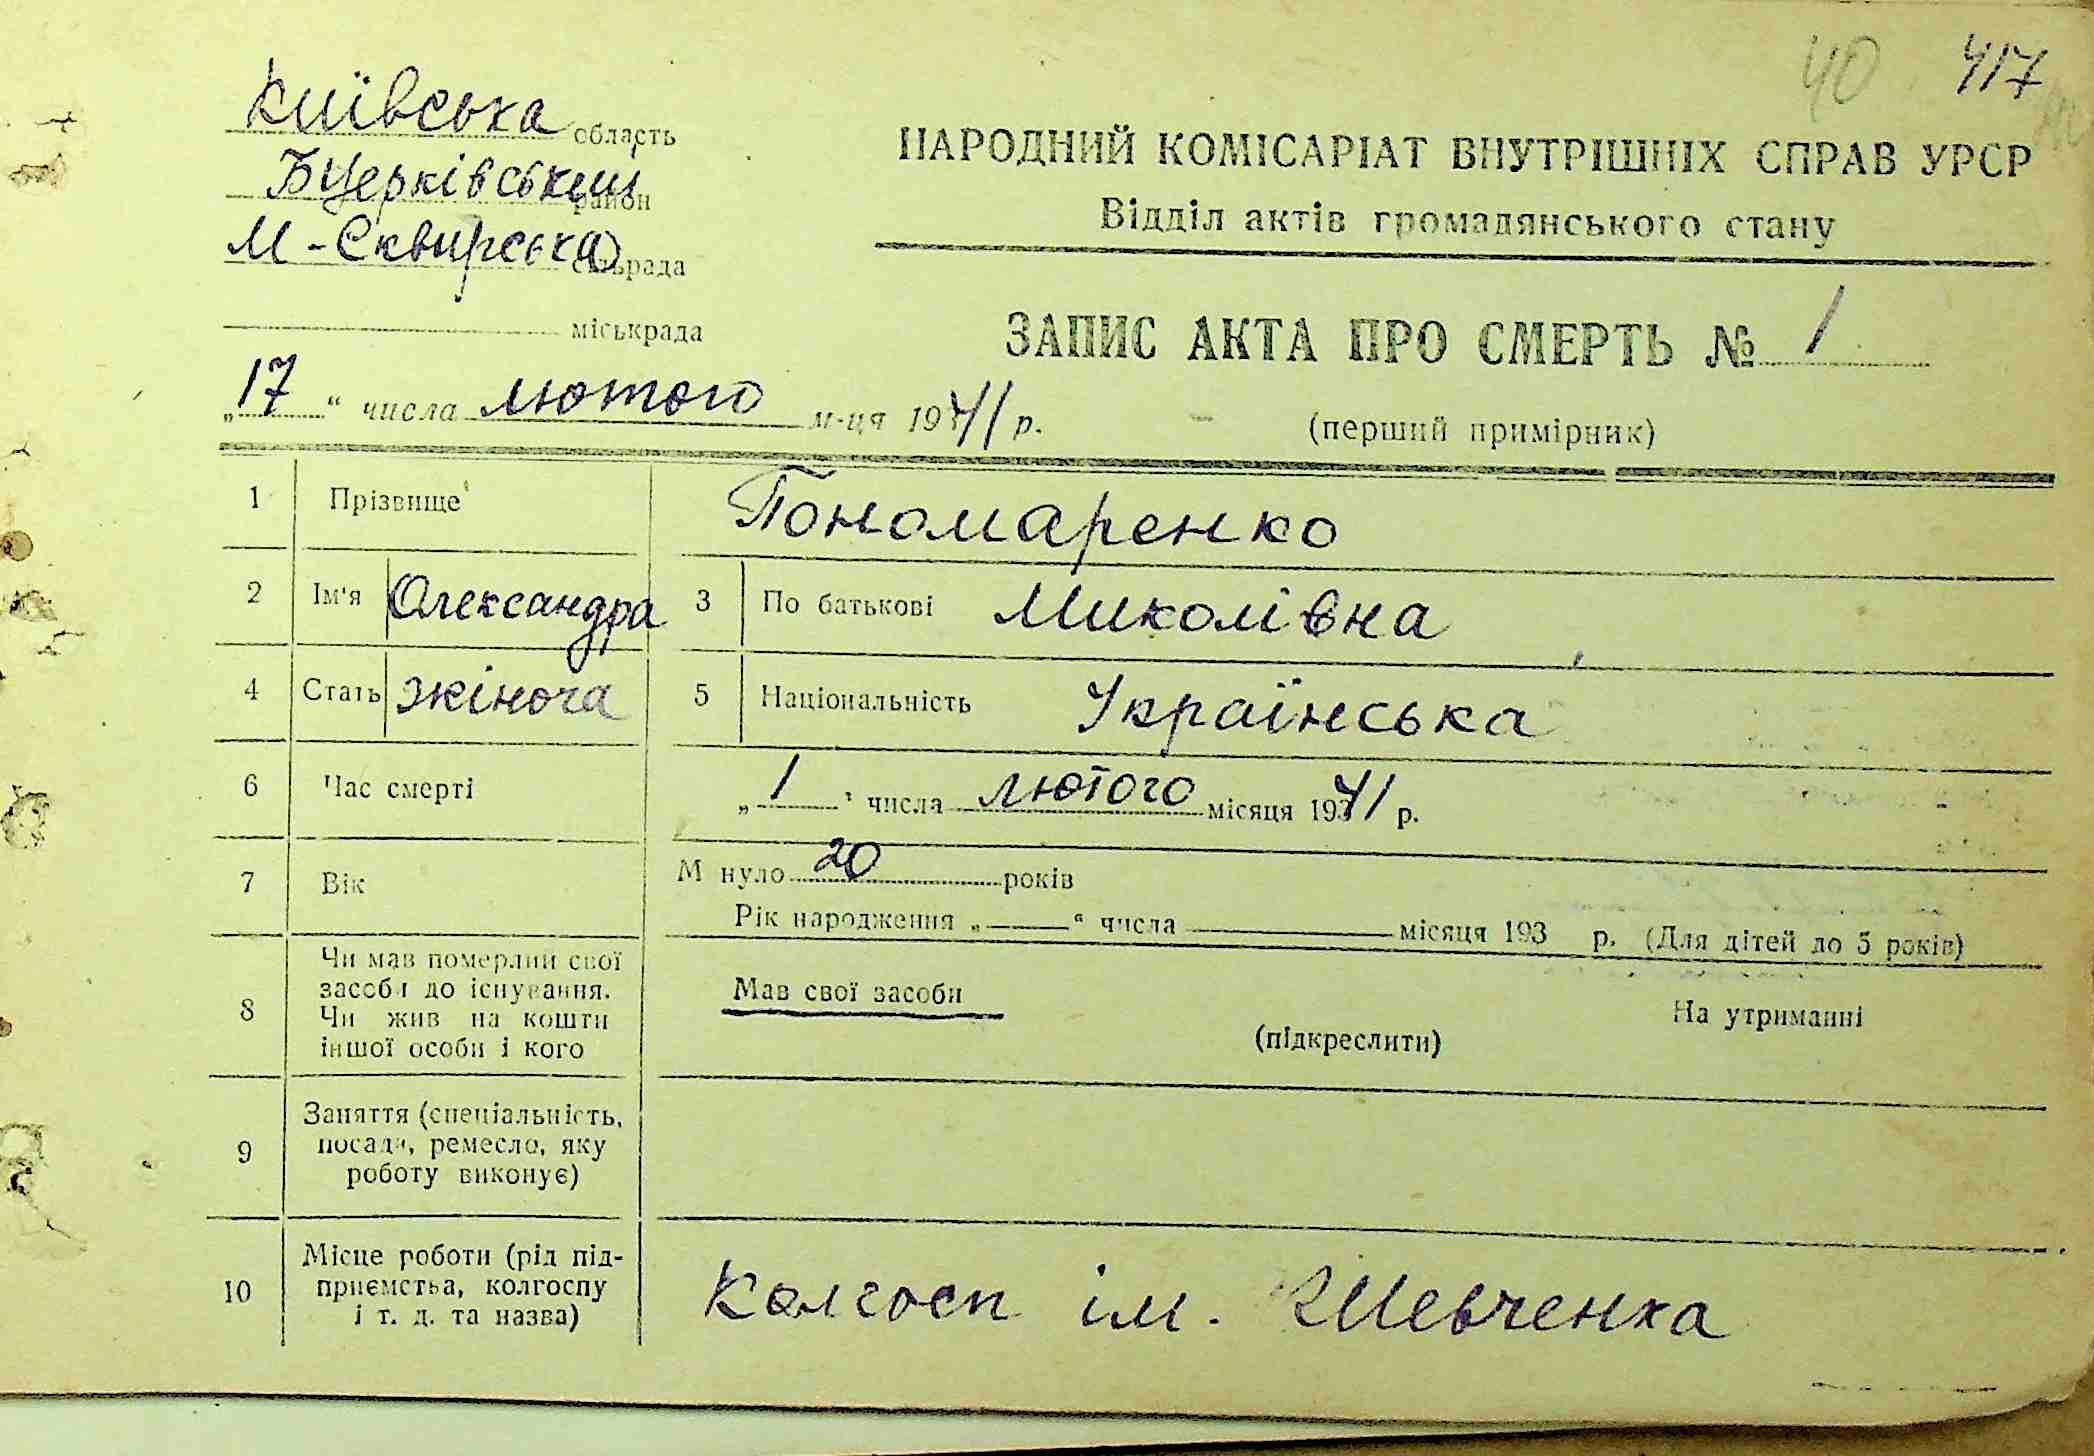 40 417
Київська область
Бцерківський район
М-Сквирська сільрада
міськрада
НАРОДНИЙ КОМІСАРІАТ ВНУТРІШНІХ СПРАВ УРСР
Відділ актів громадянського стану
ЗАПИС АКТА ПРО СМЕРТЬ № 1
„17“ числа лютого м-ця 1941 р.
(перший примірник)
1 Прізвище Пономаренко
2 Ім'я Олександра 3 По батькові Миколівна
4 Стать жіноча 5 Національність Українська
6 Час смерті „1“ числа лютого місяця 1941 р.
7 Вік М нуло 20 років
Рік народження „—“ числа — місяця 193 р. (Для дітей до 5 років)
8 Чи мав померлий свої
засоби до існування.
Чи жив на кошти
іншої особи і кого
Мав свої засоби
(підкреслити)
На утриманні
9 Заняття (спеціальність,
посада, ремесло, яку
роботу виконує)
10 Місце роботи (рід під-
приємства, колгоспу
і т. д. та назва)
Колгосп ім. Шевченка